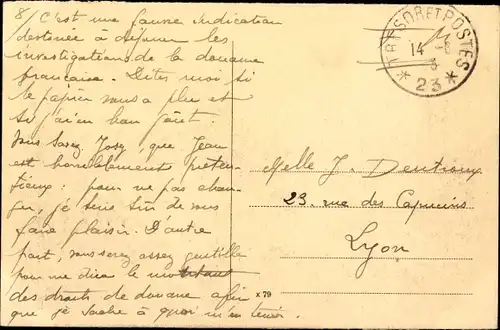 8/ C'est une fausse indication
destinée à déjouer les
investigations de la douane
française. Dites moi si
le papier vous a plu et
si j'ai eu bon goût.
Vous savez, Josy, que Jean
est horriblement préten-
tieux : pour ne pas chan-
ger, je suis sûr de vous
faire plaisir. D'autre
part, vous serez assez gentille
pour me dire le montant
des droits de douane afin
que je sache à quoi m'en tenir.
TRESOR ET POSTES
14 -8
3
* 23 *
Melle J.
23. rue des Capucins
Lyon
x 79